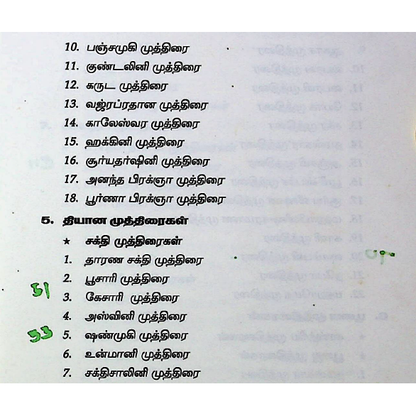 10. பஞ்சமுகி முத்திரை
11. குண்டலினி முத்திரை
12. கருட முத்திரை
13. வஜ்ரப்ரதான முத்திரை
14. காலேஸ்வர முத்திரை
15. ஹக்கினி முத்திரை
16. சூர்யதர்ஷினி முத்திரை
17. அனந்த பிரக்ஞா முத்திரை
18. பூர்ணா பிரக்ஞா முத்திரை
5. தியான முத்திரைகள்
★ சக்தி முத்திரைகள்
1. தாரண சக்தி முத்திரை
2. பூசாரி முத்திரை
51
3. கேசாரி முத்திரை
4. அஸ்வினி முத்திரை
53
5. ஷண்முகி முத்திரை
6. உன்மானி முத்திரை
7. சக்திசாலினி முத்திரை